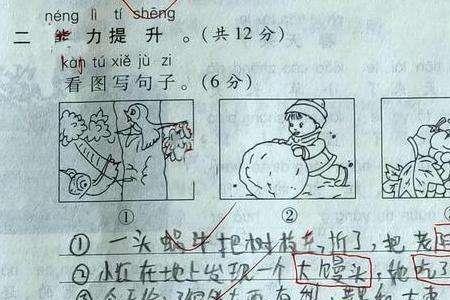 néng lì tí shēng
二 能 力 提 升 。(共 12 分)
kàn tú xiě jù zi
看 图 写 句 子 。(6 分)
① ②
① 一头蜗牛把树枝 折了，把 老
② 小红在地上发现一个大馒头，她吃了